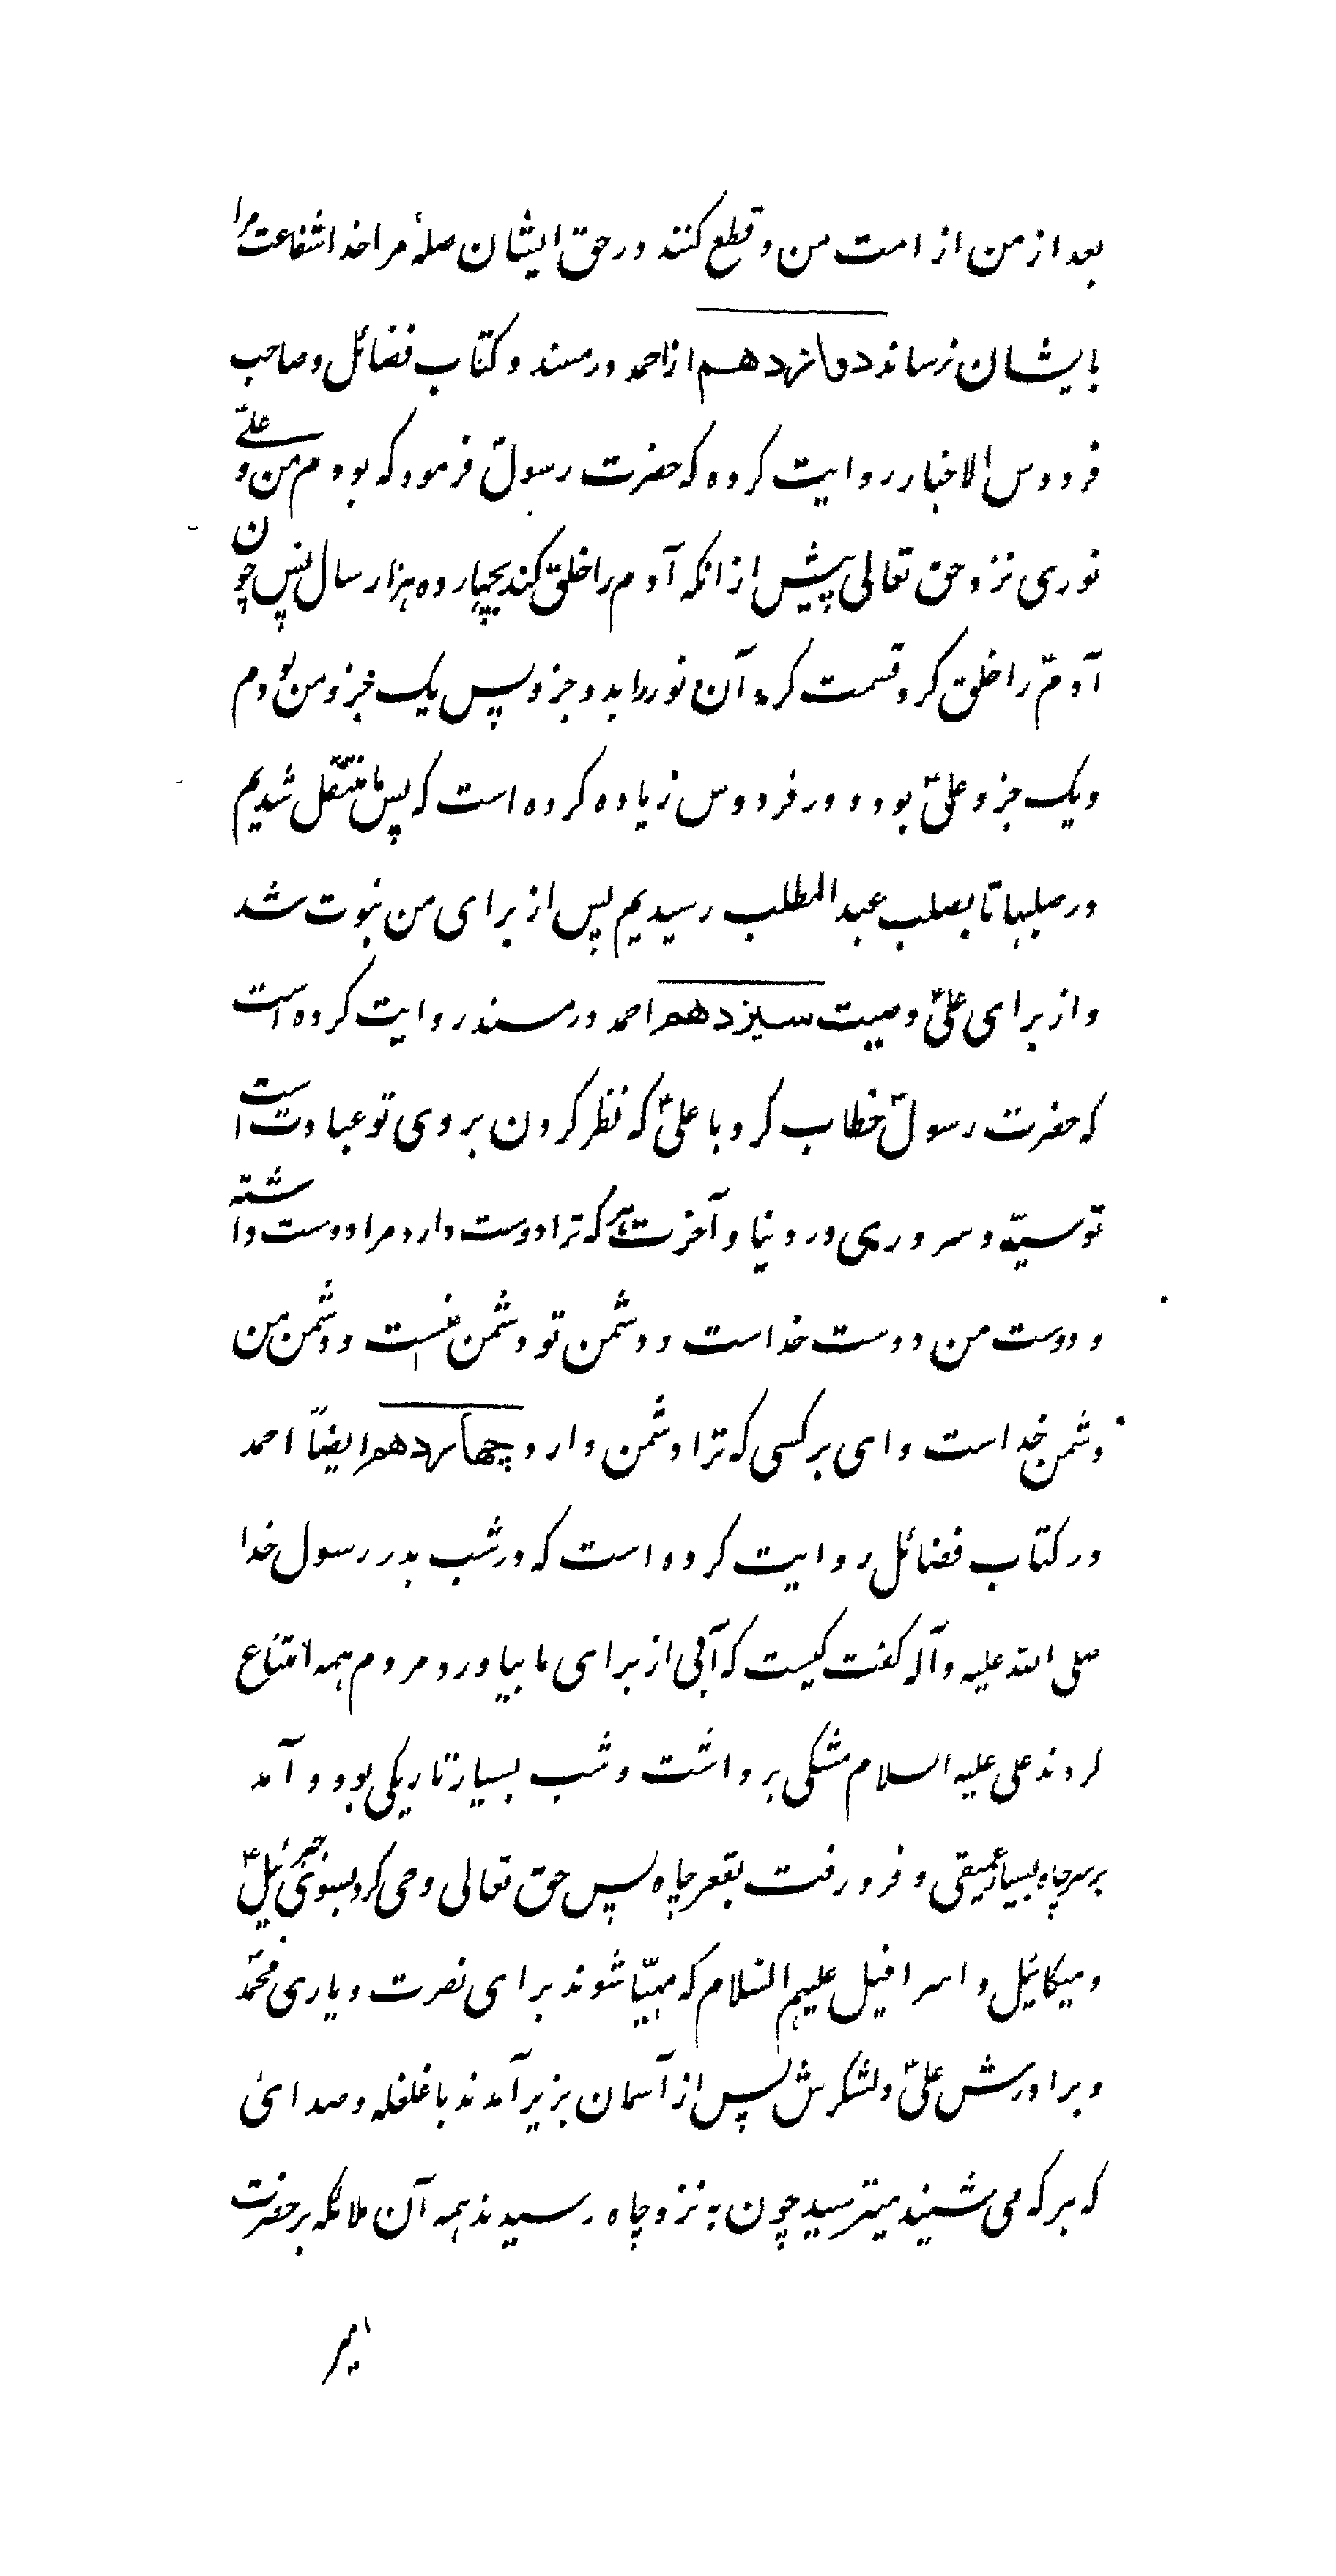 بعد از من از امت من و قطع کنند در حق ایشان صلۀ مرا خدا شفاعت مرا
بایشان نرساند دوانزدهم از احمد در مسند و کتاب فضائل و صاحب
فردوس الاخبار روایت کرده که حضرت رسولؐ فرمود که بودم من و علیؑ
نوری نزد حق تعالی پیش از انکه آدم را خلق کند بچهارده هزار سال پس چون
آدمؑ را خلق کرد قسمت کرد آن نور را بدو جزو پس یک جزو من بودم
و یک جزو علیؑ بود و در فردوس زیاده کرده است که پس ما منتقل شدیم
در صلبها تا بصلب عبدالمطلب رسیدیم پس از برای من نبوت شد
و از برای علیؑ وصیت سیزدهم احمد در مسند روایت کرده است
که حضرت رسولؐ خطاب کرد با علیؑ که نظر کردن بروی تو عبادت است
تو سیّد و سروری در دنیا و آخرت هر که ترا دوست دارد مرا دوست داشته
و دوست من دوست خداست و دشمن تو دشمن منست و دشمن من
دشمن خداست وای بر کسی که ترا دشمن دارد چهاردهم ایضاً احمد
در کتاب فضائل روایت کرده است که در شب بدر رسول خدا
صلی الله علیه و آله گفت کیست که آبی از برای ما بیاورد مردم همه امتناع
کردند علی علیه السلام مشکی برداشت و شب بسیار تاریکی بود و آمد
بر سر چاه بسیار عمیقی و فرو رفت بقعر چاه پس حق تعالی وحی کرد بسوی جبرئیلؑ
و میکائیل و اسرافیل علیهم السلام که مهیّا شوند برای نصرت و یاری محمّدؐ
و برادرش علیؑ و لشکرش پس از آسمان بزیر آمدند با غلغله و صدائی
که هر که می شنید میترسید چون به نزد چاه رسیدند همه آن ملائکه بر حضرت
امیر